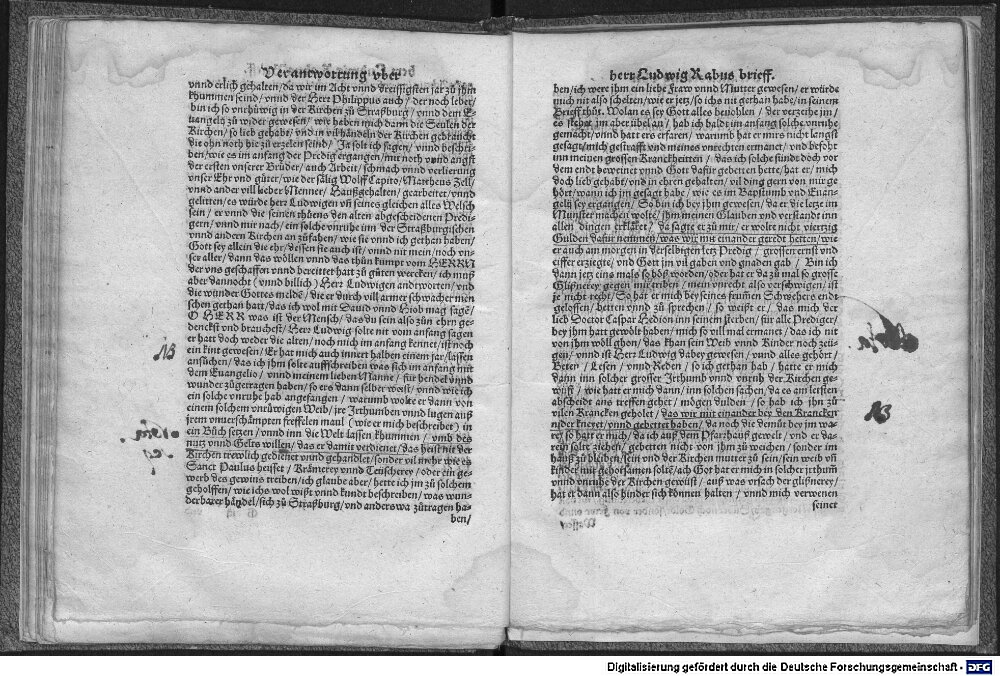 Verantwortung vber
vnnd erlich gehalten/ da wir im Acht vnnd dreissigsten jar zu jhm
khummen seind/ vnnd der Herr Philippus auch/ der noch leber/
bin ich so vnrhüwig in der Kirchen zu Straßburg/ vnnd dem E-
uangelij zu wider gewesen/ wie haben mich dann die Seulen der
Kirchen/ so lieb gehabt/ vnd in vil händeln der Kirchen gebraucht
die ohn noth hie zu erzelen seind/ Ja solt ich sagen/ vnnd beschrei-
ben/ wie es im anfang der Predig ergangen/ mit noth vnnd angst
der ersten vnserer Brüder/ auch Arbeit/ schmach vnnd verlierung
vnser Ehr vnd güter/ wie der sälig Wolff Capito/ Mattheus Zell/
vnnd ander vill lieber Menner/ Haußgehalten/ gearbeitet/ vnnd
gelitten/ es würde herr Ludwigen vñ seines gleichen alles Welsch
sein/ er vnnd die seinen rhüens den alten abgescheidenen Predi-
gern/ vnnd mir nach/ ein solche vnruhe inn der Straßburgischen
vnnd andern Kirchen an zufahen/ wie sie vnnd ich gethan haben/
Gott sey allein die ehr/ dessen sie auch ist/ vnnd nit mein/ noch vn-
ser aller/ dann das wöllen vnnd das thün kumpt vom HERRN
der vns geschaffen vnnd bereittet hatt zu güten wercken/ ich muß
aber dannocht (vnnd billich) Herr Ludwigen andtworten/ vnd
die wunder Gottes meldē/ die er durch vill armer schwacher men
schen gethan hatt/ das ich wol mit Dauid vnnd Hiob mag sagē/
O HERR was ist der Mensch/ das du sein also zun ehrn ge-
denckst vnd brauchest/ Herr Ludwig solte nit vom anfang sagen
er hatt doch weder die alten/ noch mich im anfang kennet/ ist noch
ein kint gewesen/ Er hat mich auch innert halben einem jar/ lassen
ansüchen/ das ich jhm solte auffschreiben was sich im anfang mit
dem Euangelio/ vnnd meinem lieben Manne/ für hendel vnnd
wunder zügetragen haben/ so ers dann selber weist/ vnnd wie ich
ein solche vnruhe hab angefangen/ warumb wolte er dann von
einem solchem vnrüwigen Weib/ jre Jrthumben vnnd lugen auß
jrem vnuerschämpten freffelen maul (wie er mich beschreibet) in
ein Büch setzen/ vnnd inn die Welt lassen khummen/ vmb des
nutz vnnd Gelts willen/ das er damit verdienet/ das heist nit der
Kirchen trewlich gedienet vnnd gehandlet/ sonder vil mehr wie es
Sanct Paulus heisset/ Krämerey vnnd Teuscherey/ oder ein ge-
werb des gewins treiben/ ich glaube aber/ hette ich jm zu solchem
geholffen/ wie ichs wol wißt vnnd kundt beschreiben/ was wun-
derbarer händel/ sich zu Straßburg/ vnd anderswa zütragen ha-
ben/
NB
herr Ludwig Rabus brieff.
ben/ ich were jhm ein liebe Fraw vnnd Mutter gewesen/ er würde
mich nit also schelten/ wie er jetz/ so ichs nit gethan habe/ in seinem
Brieff thüt. Wolan es sey Gott alles beuohlen/ der verzeihe jm/
es stehet jm aber übel an/ hab ich baldt im anfang solche vnruhe
gemacht/ vnnd hatt ers erfaren/ warumb hat er mirs nicht langst
gesagt/ mich gestrafft vnd meines vnrechten ermanet/ vnd beßort
inn meinen grossen Kranckheitten/ das ich solche sünde doch vor
dem endt beweinet vnnd Gott dafür gebetten hette/ hat er mich
doch lieb gehabt/ vnd in ehren gehalten/ vil ding gern von mir ge
hört/ wann ich jm gesagt habe/ wie es im Bapstumb vnd Euan-
gelij sey ergangen/ So bin ich bey jhm gewesen/ da er die letze im
Münster machen wolte/ jhm meinen Glauben vnd verstandt inn
allen dingen erkläret/ da sagte er zu mir/ er wolte nicht viertzig
Gulden dafür nemmen/ was wir mit einander geredt hetten/ wie
er auch am morgen in derselbigen letz Predig/ grossen ernst vnd
eiffer erzeigte/ vnd Gott jm vil gaben vnd gnaden gab/ Bin ich
dann jetz eins mals so böß worden/ oder hat er da zu mal so grosse
Glißnerey gegen mir triben/ mein vnrecht also verschwigen/ ist
je nicht recht/ So hat er mich bey seines frumēn Schwehers endt
geloffen/ betten vnnd zu sprechen/ so weißt er/ das mich der
lieb Doctor Caspar Hedion inn seinem sterben/ für alle Prediger/
bey jhm hatt gewölt haben/ mich so vill mal ermanet/ das ich nit
von jhm wöll ghon/ das khan sein Weib vnd Kinder noch zeü-
gen/ vnnd ist Herr Ludwig dabey gewesen/ vnnd alles gehört/
Betten/ Lesen/ vnnd Reden/ so ich gethan hab/ hatte er mich
dann inn solcher grosser Jrthumb vnnd vnruh der Kirchen ge-
wüst/ wie hatt er mich dann/ inn solchen sachen/ da es am letsten
abscheidt ans treffen gehet/ mögen dulden/ so hab ich jhn zu
vilen Krancken geholet/ das wir mit einander bey den Krancken
nider knewet/ vnnd gebettet haben/ da noch die demüt bey im wa-
re/ so hatt er mich/ da ich auß dem Pfarrhauß gewelt/ vnd er da-
rein solt ziehen/ gebetten nicht von jhm zu weichen/ sonder im
hauß zu bleiben/ sein vnd der Kirchen mutter zu sein/ sein weib vñ
kinder mir gehorsamen solte/ ach Got hat er mich in solcher jrthum̄
vnnd vnruhe der Kirchen gewüst/ auß was vrsach der glißnerey/
hat er dann also hinder sich können halten/ vnnd mich verwenen
seiner
NB
Digitalisierung gefördert durch die Deutsche Forschungsgemeinschaft - DFG